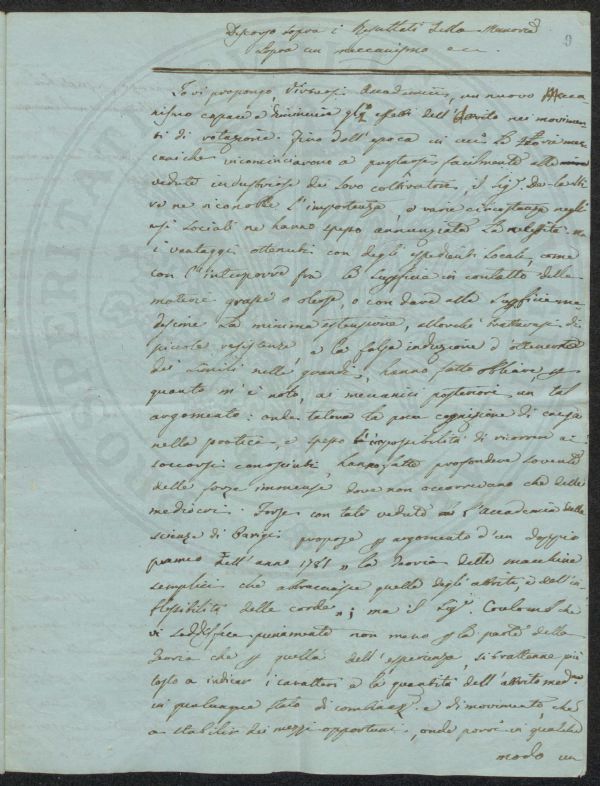 Discorso sopra i Resultati della Memoria
sopra un meccanismo ec.
9
Io vi propongo, Virtuosi Accademici, un nuovo Mecca-
nismo capace a diminuire gli effetti dell'Attrito nei movimen-
ti di rotazione. Fino dall'epoca in cui le teorie mec-
caniche incominciarono a prestarsi facilmente alle
vedute industriose dei loro coltivatori, il Sig. De la Hi
re ne riconobbe l'importanza, e varie circostanze negli
usi sociali ne hanno spesso annunziata la necessità. Ma
i vantaggi ottenuti con degli espedienti locali, come
con l'interporre fra le superficie in contatto delle
materie grasse o oleose, o con dare alle superficie me-
desime la minima estensione, allorchè trattavasi di
piccole resistenze, e la falsa induzione d'ottenerne
dei simili nelle grandi, hanno fatto obliare p
quanto m'è noto, ai meccanici posteriori un tal
argomento: onde talora la poca cognizione di causa
nella pratica, e spesso l'impossibilità di ricorrere ai
soccorsi conosciuti, hanno fatto profondere sovente
delle forze immense dove non occorrevano che delle
mediocri. Forse con tali vedute l'Accademia delle
scienze di Parigi propose p argomento d'un doppio
premio dell'anno 1781 „ la Teoria delle macchine
semplici che abbracciasse quella degli attriti, e dell'in
flessibilità delle corde „; ma il Sig. Coulomb che
vi soddisfece pienamente non meno p la parte della
Teoria che p quella dell'esperienza, si trattenne piu
tosto a indicar i caratteri e la quantità dell'attrito med.mo
in qualunque stato di e di movimento, che
a stabilir dei mezzi opportuni, onde porre in qualche
modo un